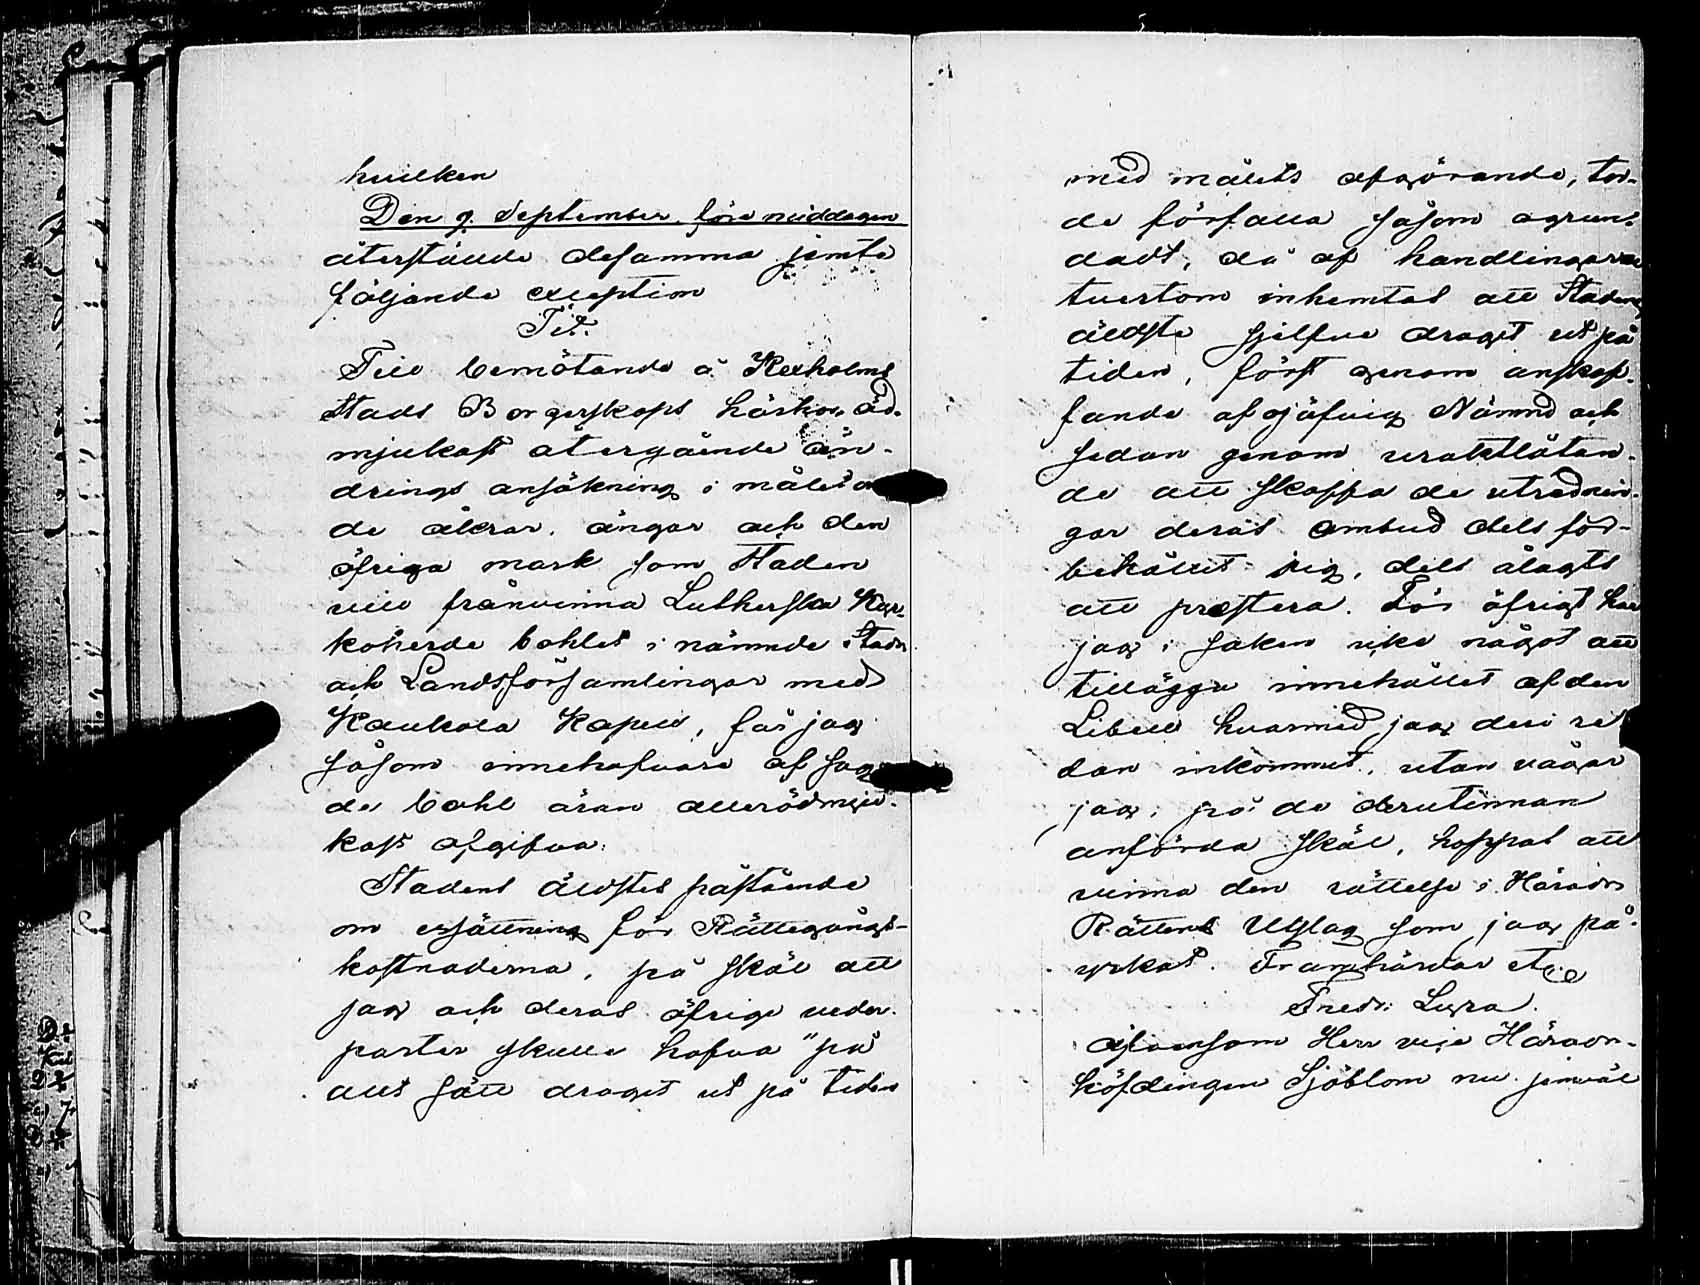 hvilken
Den 9. September. före middagen
återstäude desamma jemte
följande exception
Tit.
Till bemötande å Kexholms
Stads Borgerskaps härhos öd-
mjukast återgående än-
drings ansökning i målet
de åkrar, ängar och den
öfriga mark som Staden
vill frånvinna Lutherska Kyr-
koherde bohlet i nämnde Stads
och Landsförsamlingar med
Kaukola Kapell, får jag
såsom innehafvare af sag
de bohl äran allerödmju-
kast afgifva:
Stadens äldstes påstående
om ersättning för Rättegångs-
kostnaderna, på skäl att
jag och deras öfrige veder-
parter skulle hafva "på
allt sätt dragit ut på tiden
med målets afgörande, tor-
de förfalla såsom ogrun-
dadt, då af handlingarne
tvertom inhemtas att Stadens
äldste sjelfve dragit ut på
tiden, först genom anskaf-
fande af ojäfvig Nämnd och
sedan genom uraktlåtan-
de att skaffa de utrednin-
gar deras ombud dels för-
behållit sig, dels ålagts
att præstera. För öfrigt har
jag i saken icke något att
tillägga innehållet af den
Libell hvarmed jag deri re
dan inkommit, utan vågar
jag, på de derutinnan
anförda skäl, hoppas att
vinna den rättelse i Härads
Rättens Utslag som jag på-
yrkat. Framhärdar etc
Fredr: Lyra.
äfvensom Herr vice Härads-
höfdingen Sjöblom nu jemväl